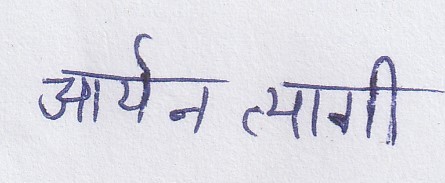 आर्यन त्यागी